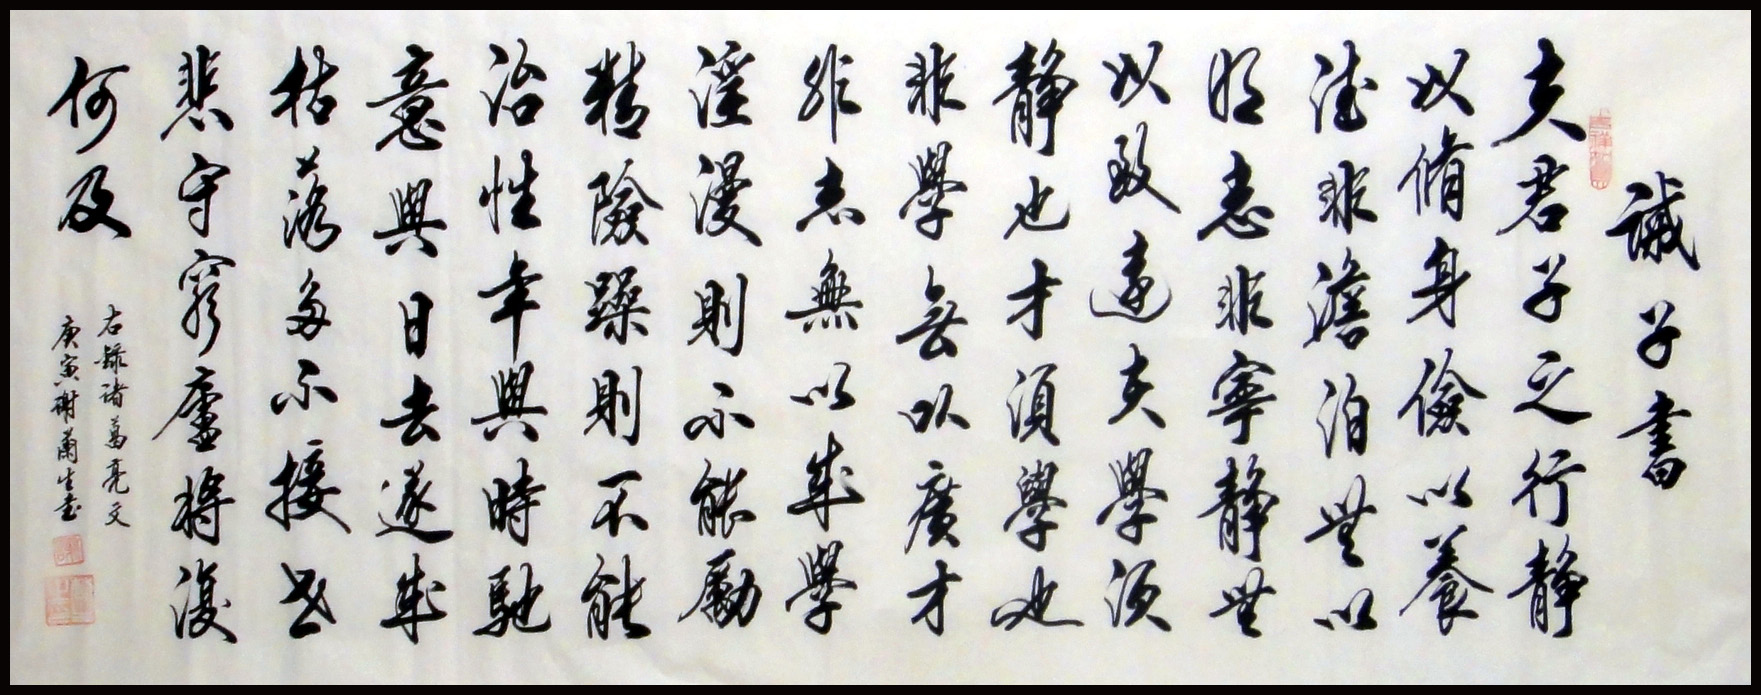 誡子書
夫君子之行靜
以脩身儉以養
德非澹泊無以
明志非寧靜無
以致遠夫學須
靜也才須學也
非學無以廣才
非志無以成學
淫漫則不能勵
精險躁則不能
治性年與時馳
意與日去遂成
枯落多不接世
悲守窮廬將復
何及
右錄諸葛亮文
庚寅謝蘭生書